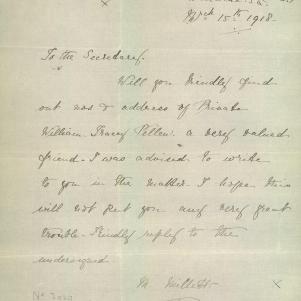 15th 1918.
To the Secretary.
Will you kindly find
out nos & address of Private
William Tracey Pellew. a very valued
friend. I was advised to write
to you in the matter. I hope this
will not put you any very great
trouble. Kindly reply to the
undersigned
M. Millett
No